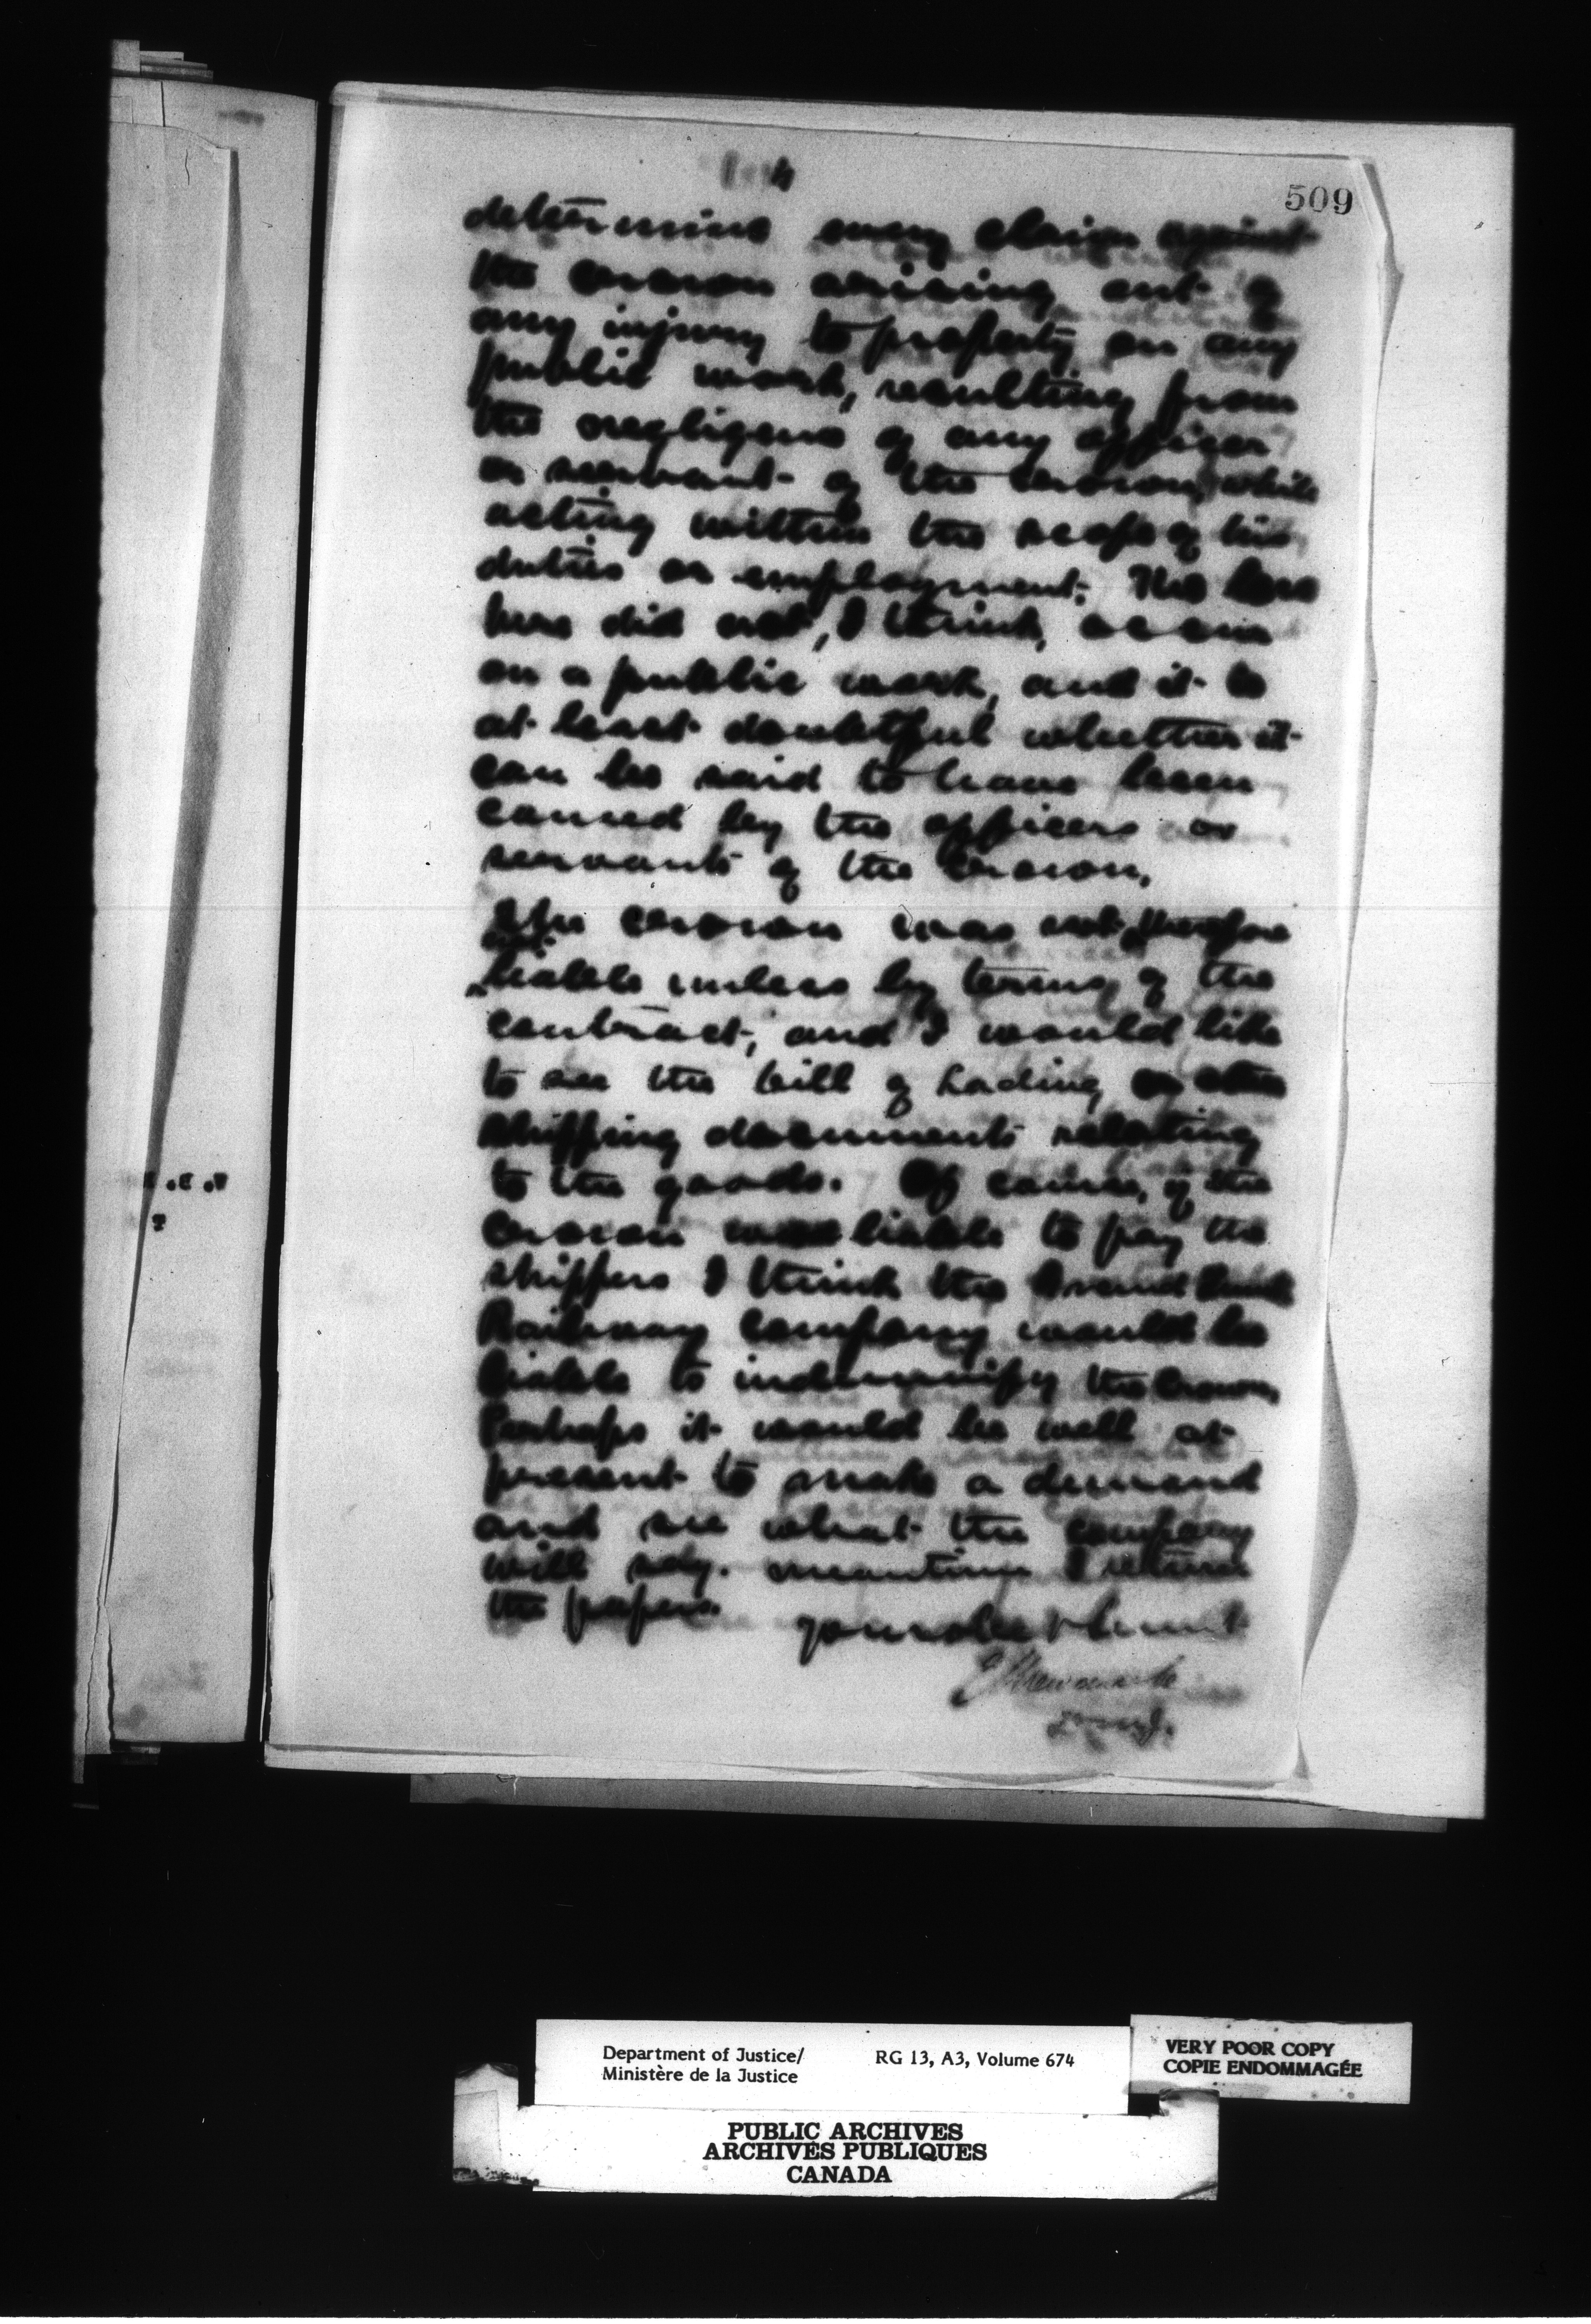 4
509
determine every claim against
the crown arising out of
any injury to property on any
public work, resulting from
the negligence of any officer
or servant of the Crown, while
acting within the scope of his
duties or employment. The loss
here did not, I think, occur
on a public work, and it is
at least doubtful whether it
can be said to have been
caused by the officers or
servants of the Crown.
The crown was not therefore
not
liable unless by terms of the
contract, and I would like
to see the bill of Lading or other
shipping documents relating
to the goods. Of course, if the
crown was liable to pay the
shippers I think the Grand Trunk
Railway Company would be
liable to indemnify the Crown,
Perhaps it would be well at
present to make a demand
and see what the company
will say. Meantime I return
the papers.
your obedt servant
E L Newcombe
D M J.
Department of Justice/ RG 13, A3, Volume 674
Ministère de la Justice
VERY POOR COPY
COPIE ENDOMMAGÉE
PUBLIC ARCHIVES
ARCHIVES PUBLIQUES
CANADA